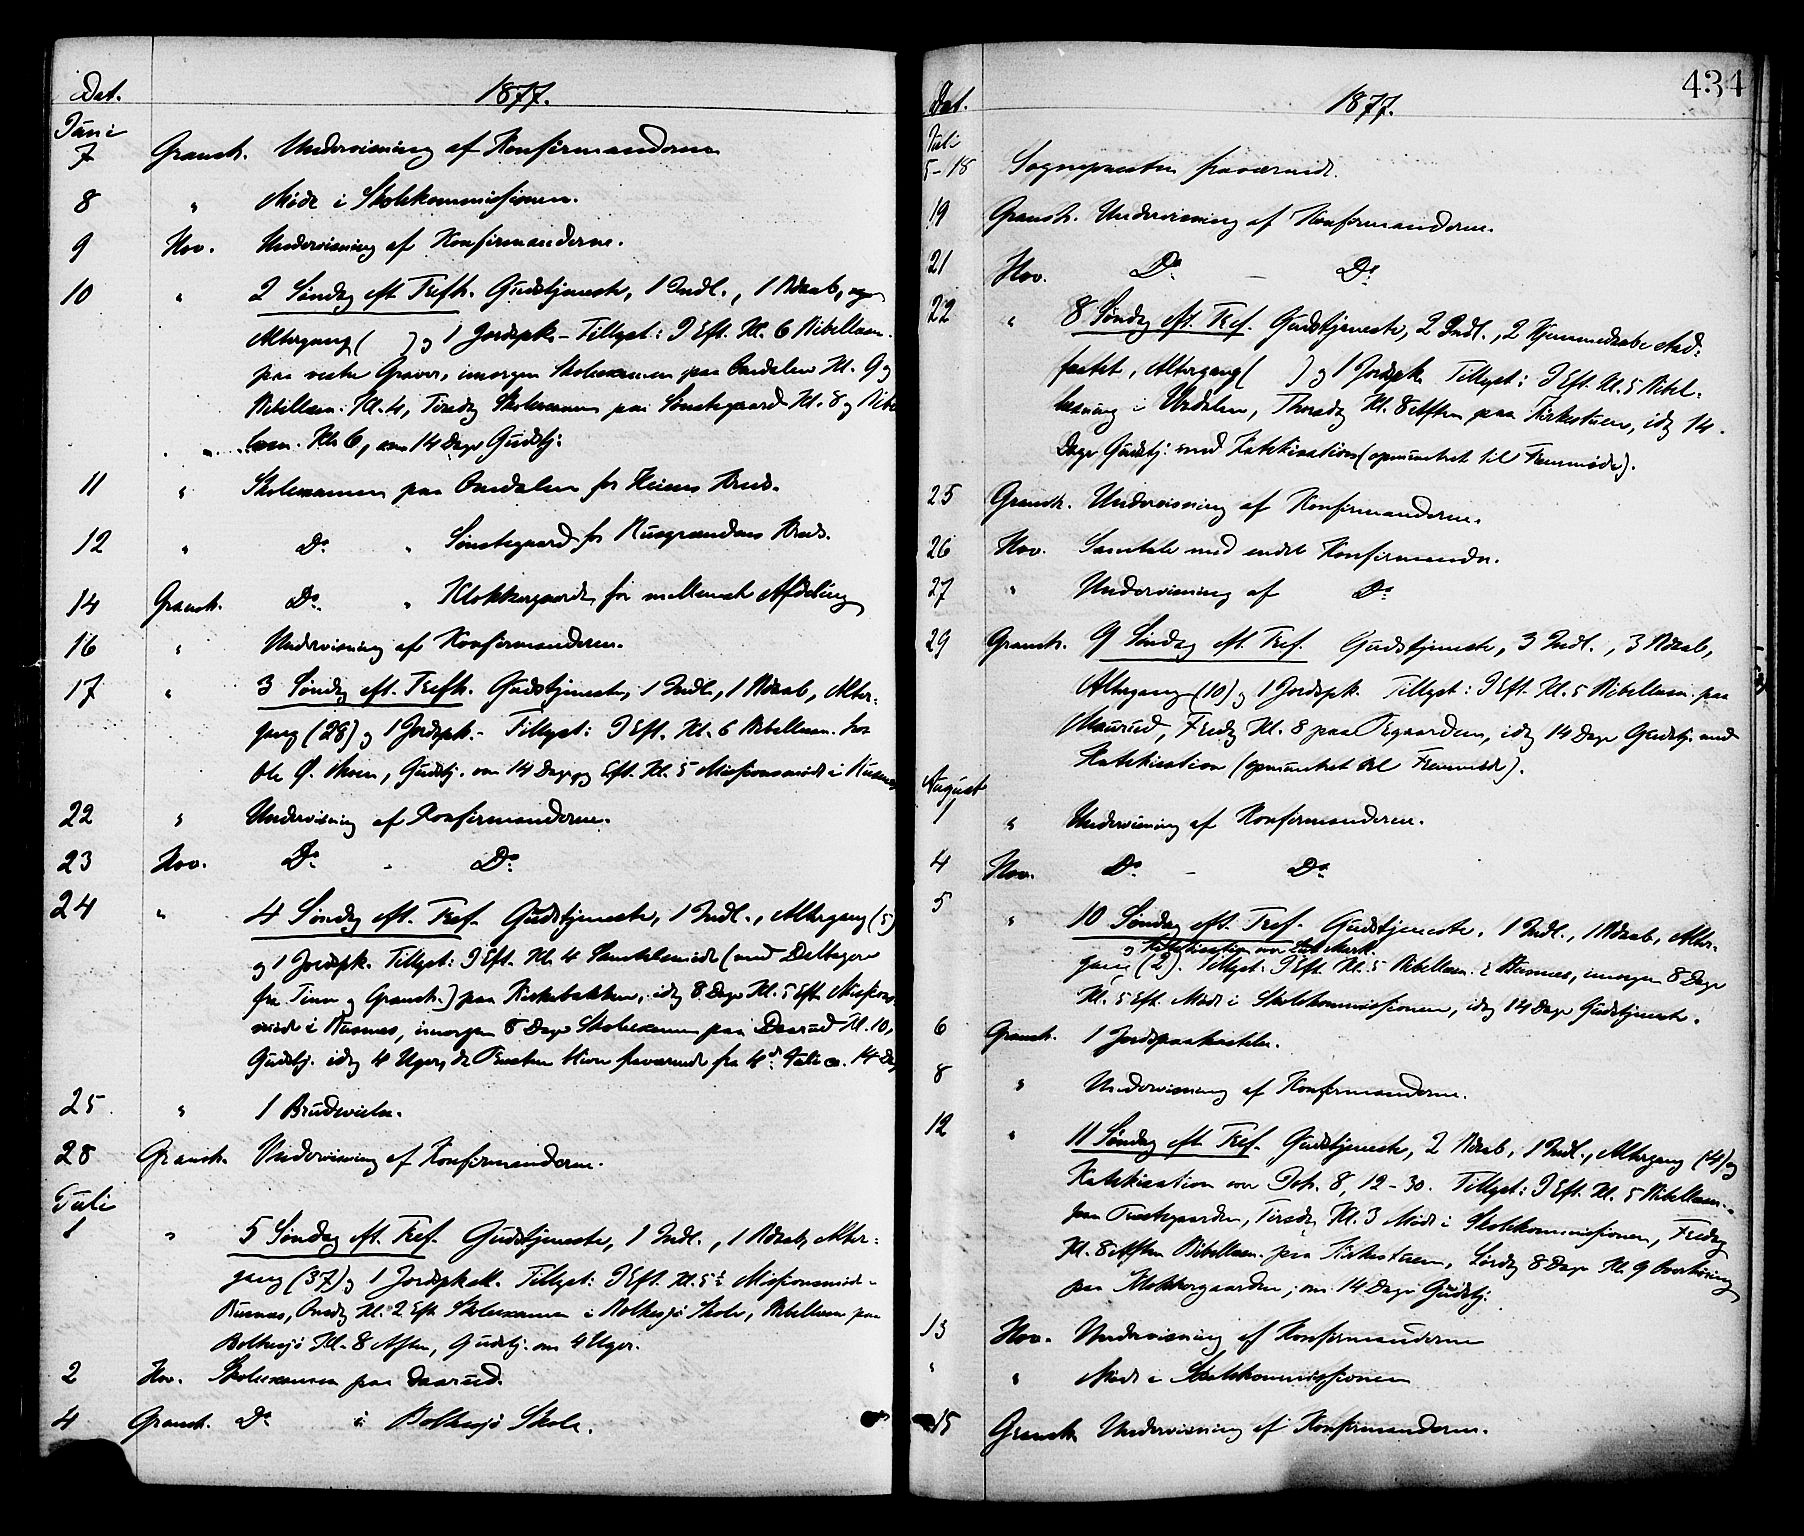 Dat. 1877.
Juni
7 Gransh. Undervisning af Konfirmanderne
8 " Møde i Skolekommissionen.
9 Hov. Undervisning af Konfirmanderne.
10 " 2 Søndag eft. Trefh. Gudstjeneste, 1 Indl., 1 Bdaab,
Altergang ( ) og 1 Jordspk. - Tillyst: I Eft. Kl. 6 Bibellæsn.
paa vestre Graver, imorgen Skoleexamen paa Omdalen Kl. 9 og
Bibellæsn. Kl. 4, Tirsdag Skoleexamen paa Sønstegaard Kl. 8 og Bibel
læsn. Kl. 6, om 14 Dage Gudstj.
11 " Skoleexamen paa Omdalen for Heiens Kreds.
12 " Do. " Sønstegaard for Rusgrændens Kreds.
14 Gransh. Do. " Klokkergaarden for mellemste Afdeling
16 " Undervisning af Konfirmanderne.
17 " 3 Søndag eft. Trefh. Gudstjeneste, 1 Indl., 1 Bdaab, Alter-
gang (28) og 1 Jordspk. - Tillyst: I Eft. Kl. 6 Bibellæsn. hos
Ole Ø. Moen, Gudstj. om 14 Dage og Eft. Kl. 5 Missionsmøde i Rusnes
22 " Undervisning af Konfirmanderne.
23 Hov. Do. - Do.
24 " 4 Søndag eft. Tref. Gudstjeneste, 1 Indl., Altergang (5)
og 1 Jordspk. Tillyst: I Eft. Kl. 4 Samtalemøde (med Deltagere
fra Tinn og Gransh.) paa Kirkebakken, idag 8 Dage Kl. 5 Eft. Missions
møde i Rusnes, imorgen 8 Dage Skoleexamen paa Daarud Kl. 10,
Gudstj. idag 4 Uger, da Præsten bliver fraværende fra 4de Juli ca. 14 Dag
25 " 1 Brudevielse.
28 Gransh. Undervisning af Konfirmanderne.
Juli
1 " 5 Søndag eft. Tref. Gudstjeneste, 1 Indl., 1 Bdaab, Alter-
gang (37) og 1 Jordspk. Tillyst: I Eft. Kl. 5½ Missionsmøde
Rusnes, Onsdag Kl. 2 Eft. Skoleexamen i Bolkesjø Skole, Bibellæsn. paa
Bolkesjø Kl. 8 Aften, Gudstj. om 4 Uger.
2 Hov. Skoleexamen paa Daarud.
4 Gransh. Do. i Bolkesjø Skole.
434
Dat. 1877.
Juli
5-18 Sognepræsten fraværende.
19 Gransh. Undervisning af Konfirmanderne.
21 Hov. Do. - Do.
22 " 8 Søndag eft. Tref. Gudstjeneste, 2 Indl., 2 Hjemmedaab stad-
fæstet, Altergang ( ) og 1 Jordspk. Tillyst: I Eft. Kl. 5 Bibel-
læsning i Vindalen, Thorsdag Kl. 8 Aften paa Kirkestuen, idag 14
Dage Gudstj. med Katekisation (opmuntret til Fremmøde).
25 Gransh. Undervisning af Konfirmanderne.
26 Hov. Samtale med endel Konfirmander.
27 " Undervisning af Do.
29 Gransh. 9 Søndag eft. Tref. Gudstjeneste, 3 Indl., 3 Bdaab,
Altergang (10) og 1 Jordspk. Tillyst: I Eft. Kl. 5 Bibellæsn. paa
Maurud, Fredag Kl. 8 paa Øigaarden, idag 14 Dage Gudstj. med
Katekisation (opmuntret til Fremmøde).
August
1 " Undervisning af Konfirmanderne.
4 Hov. Do. - Do.
5 " 10 Søndag eft. Tref. Gudstjeneste, 1 Indl., 1 Bdaab, Alter-
og Katekisation over
gang (2). Tillyst: I Eft. Kl. 5 Bibellæsn. i Rusnes, imorgen 8 Dage
Kl. 5 Eft. Møde i Skolekommissionen, idag 14 Dage Gudstjeneste.
6 Gransh. 1 Jordspaakastelse.
8 " Undervisning af Konfirmanderne.
12 " 11 Søndag eft. Tref. Gudstjeneste, 2 Bdaab, 1 Indl., Altergang (14) og
Katekisation over Joh. 8, 12-30. Tillyst: I Eft. Kl. 5 Bibellæsn.
paa Præstegaarden, Tirsdag Kl. 3 Møde i Skolekommissionen, Fredag
Kl. 8 Aften Bibellæsn. paa Kirkestuen, Lørdag 8 Dage Kl. 9 Overhøring
paa Klokkergaarden, om 14 Dage Gudstj.
13 Hov. Undervisning af Konfirmanderne
" " Møde i Skolekommissionen
15 Gransh. Undervisning af Konfirmanderne.